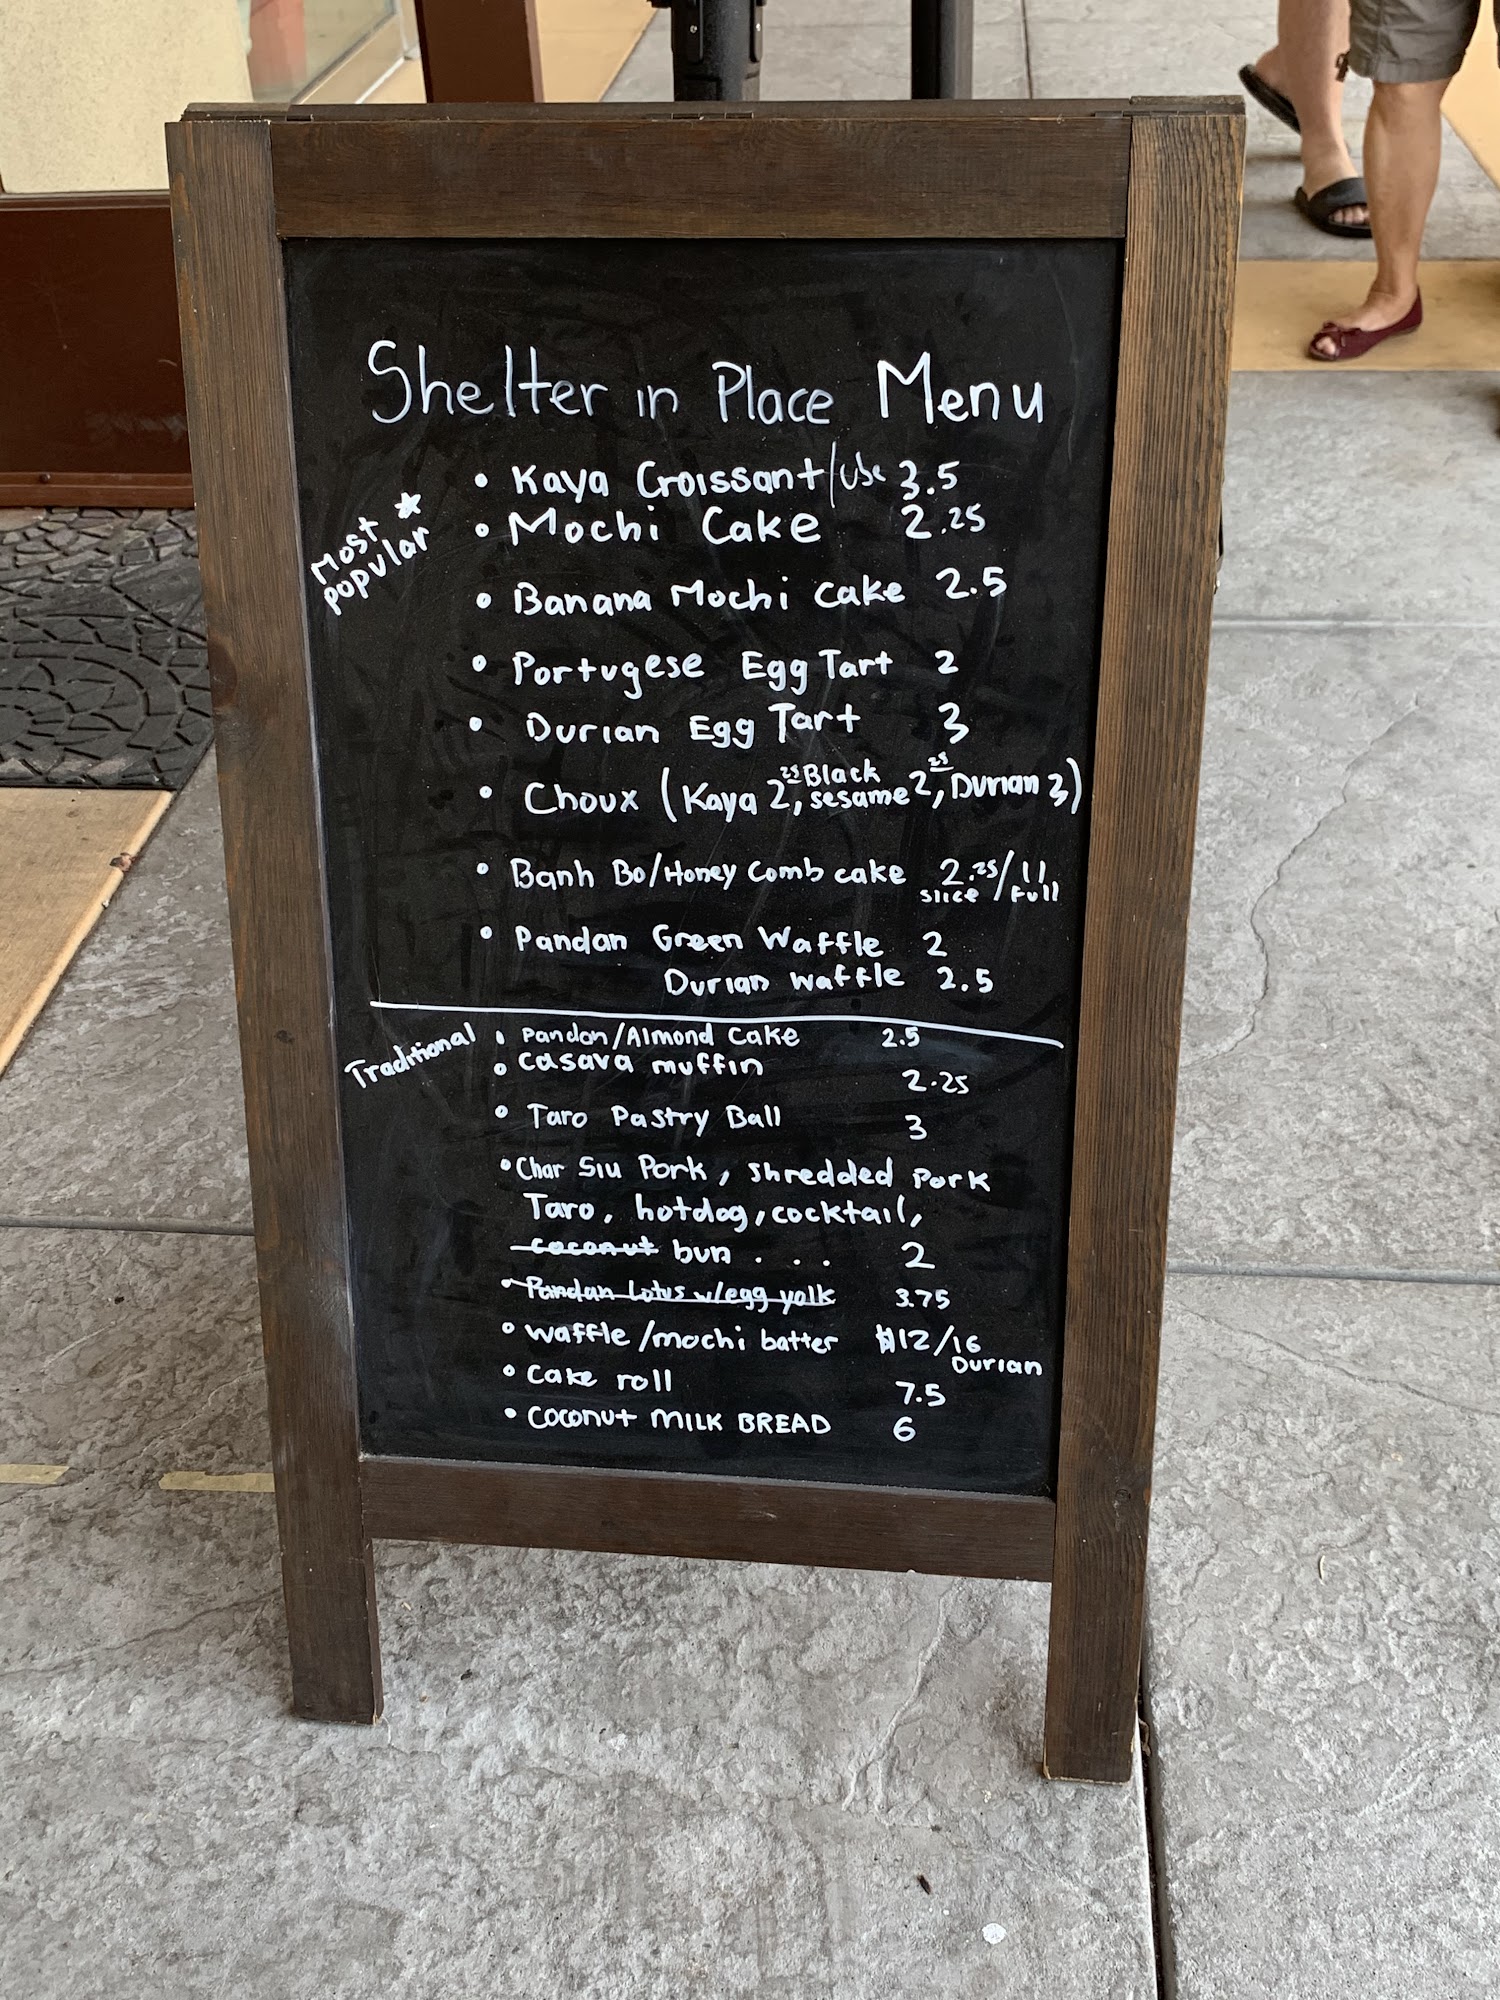 Shelter in Place Menu
• Kaya Croissant/ube 3.5
Most popular
• Mochi Cake 2.25
• Banana Mochi Cake 2.5
• Portugese Egg Tart 2
• Durian Egg Tart 3
• Choux (Kaya 2.25, Black sesame 2.25, Durian 3)
• Banh Bo/Honey Comb cake 2.25/11
slice/full
• Pandan Green Waffle 2
Durian Waffle 2.5
Traditional
• Pandan/Almond Cake 2.5
• Casava muffin 2.25
• Taro Pastry Ball 3
• Char Siu Pork, shredded pork
Taro, hotdog, cocktail,
coconut bun . . . 2
• Pandan Lotus w/egg yolk 3.75
• waffle/mochi batter $12/16
Durian
• Cake roll 7.5
• Coconut MILK BREAD 6